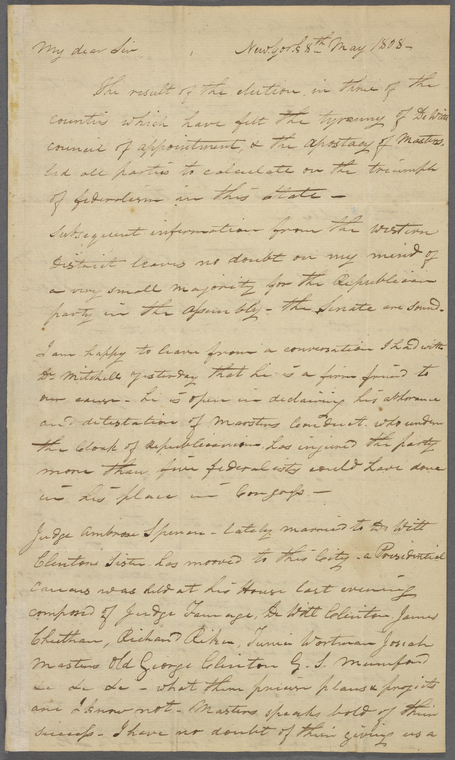 My dear Sir New York 8th May 1808 -
The result of the election, in three of the
counties which have felt the tyranny of De Witts
council of appointment, & the apostacy of Masters,
led all parties to calculate on the triumph
of federalism in this State -
Subsequent information from the western
District leaves no doubt on my mind of
a very small majority for the Republican
party in the Assembly - the Senate are sound -
I am happy to leave from a conversation I had with
Dr. Mitchell yesterday that he is a firm friend to
our cause - he is open in declaring his abhorance
and detestation of Masters Conduct. who under
the Cloak of Republicanism, has injured the party
more than five federalists could have done
in his place in Congress -
Judge Ambrose Spencer - lately married to De Witt
Clintons Sister. has mooved to this City - a Presidential
Caucus was held at his House last evening
composed of Judge , De Witt Clinton, James
Cheetham, Richard Riker, Tunis Wortman Josiah
Masters Old George Clinton G. S. Mumford
&c &c &c - what their plans & projects
are I know not - Masters speaks bold of their
success - I have no doubt of their giving us a